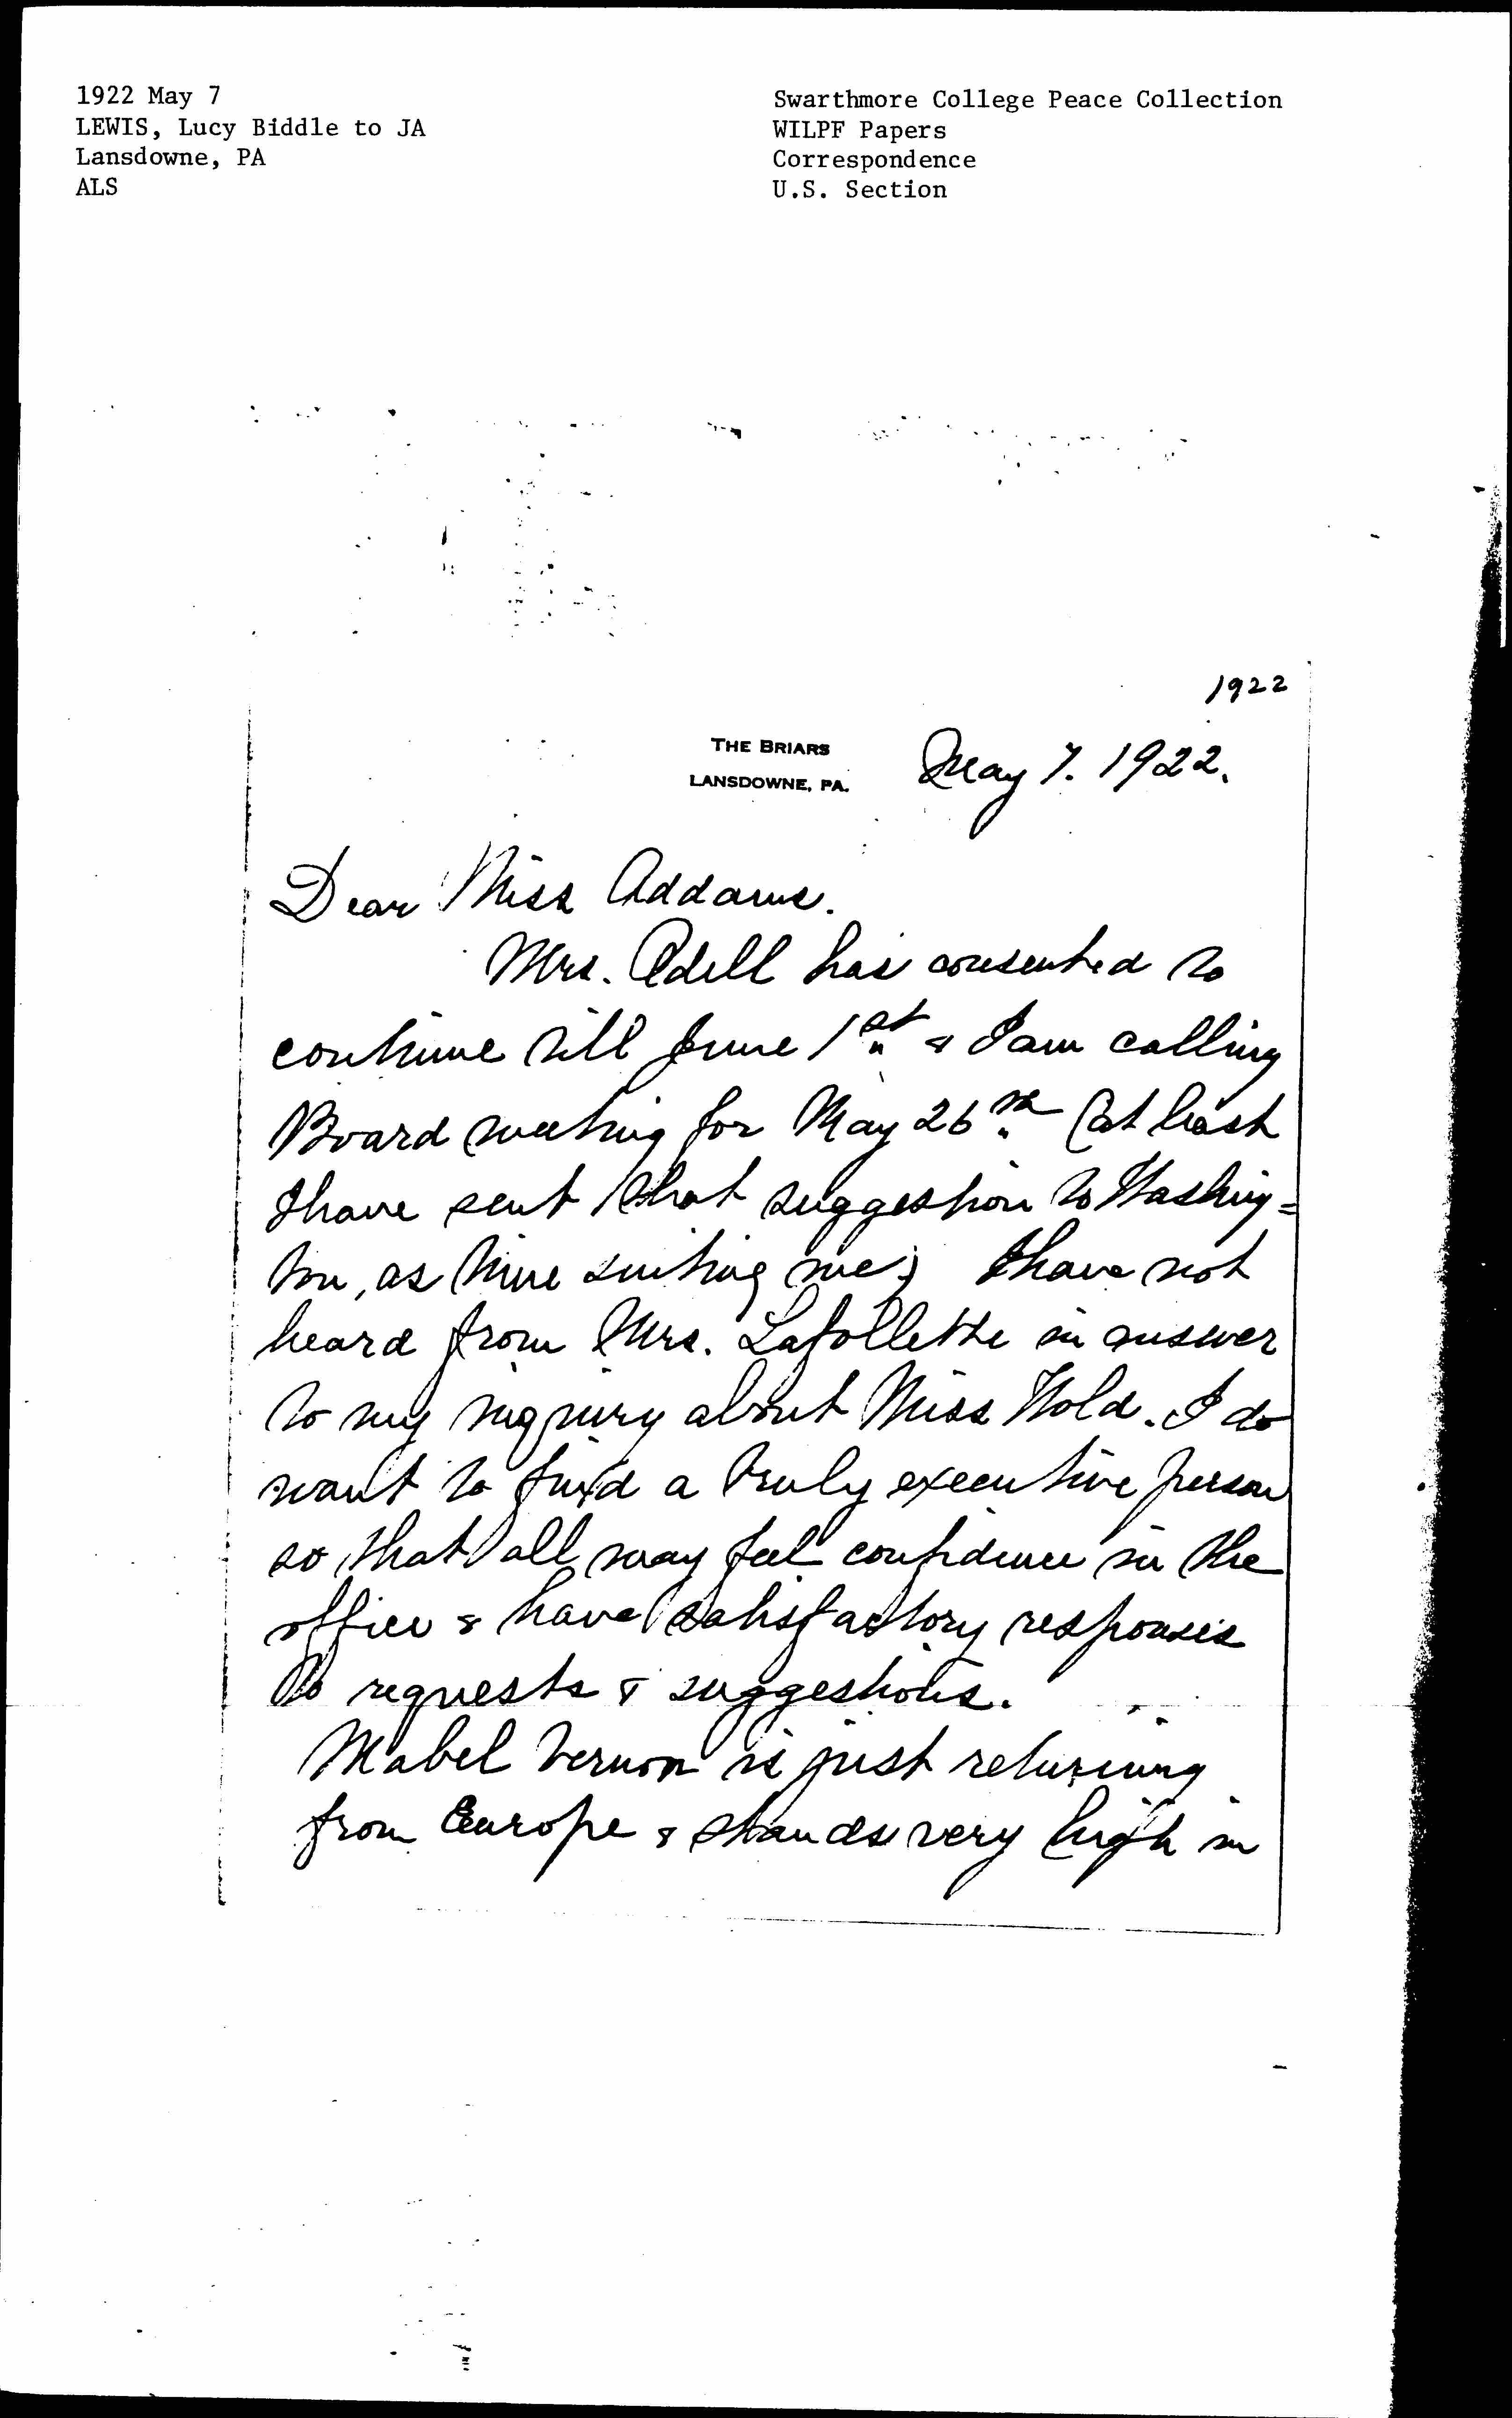 1922 May 7
LEWIS, Lucy Biddle to JA
Lansdowne, PA
ALS
Swarthmore College Peace Collection
WILPF Papers
Correspondence
U.S. Section
1922
THE BRIARS
LANSDOWNE, PA.
May 7. 1922.
Dear Miss Addams.
Mrs. Odell has consented to
continue till June 1st & I am calling
Board meeting for May 26th (at least
I have sent that suggestion to Washing=
ton, as time suiting me) I have not
heard from Mrs. Lafollette in answer
to my inquiry about Miss Wold. I do
want to find a truly executive person
so that all may feel confidence in the
office & have satisfactory responses
to requests & suggestions.
Mabel Vernon is just returning
from Europe & stands very high in